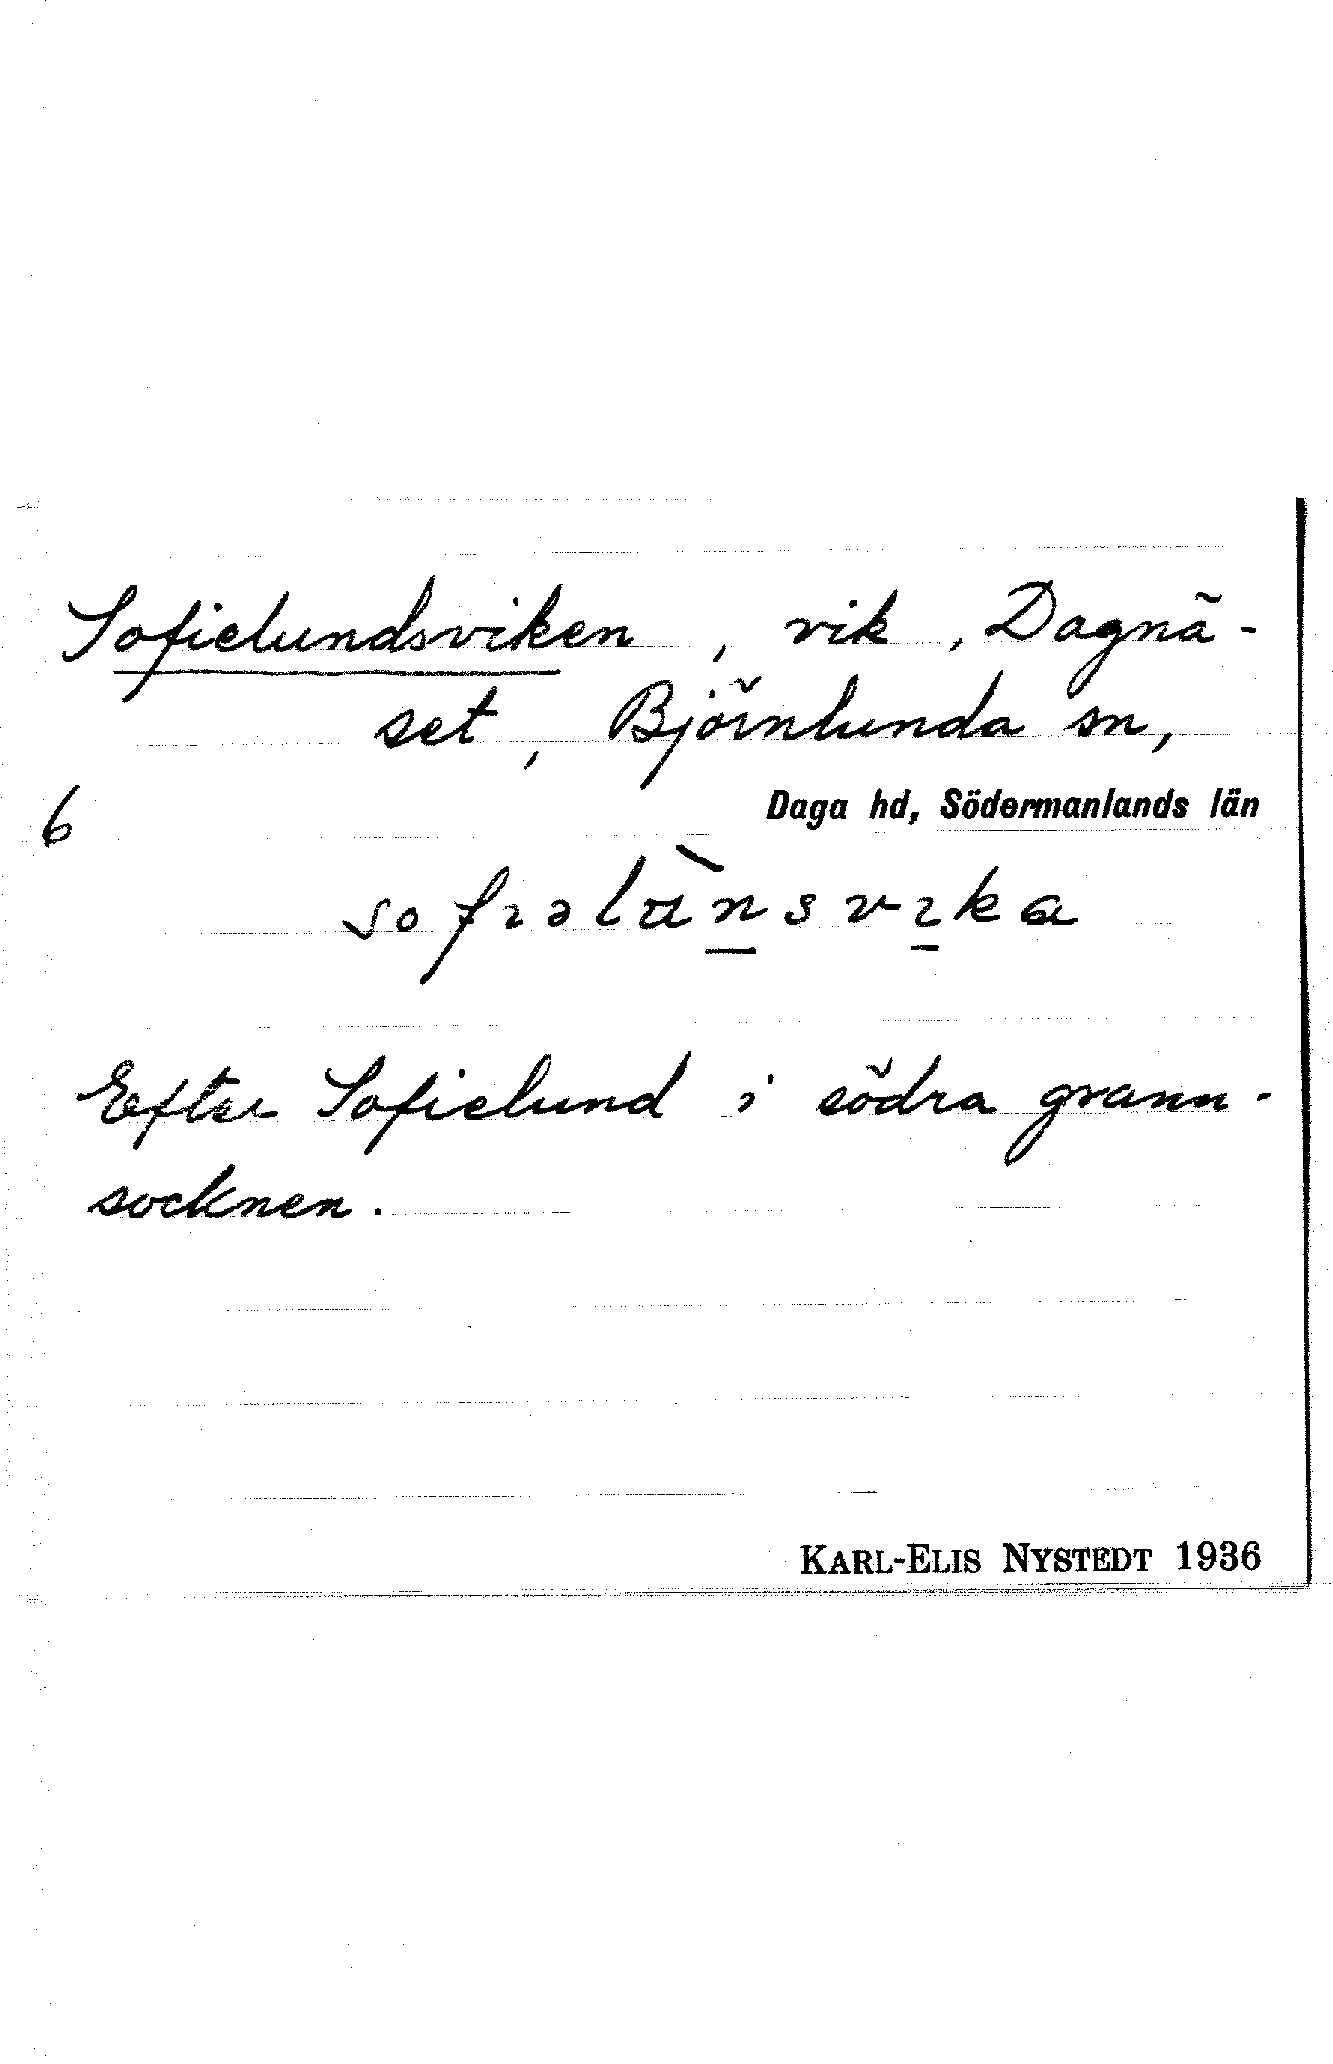 Sofielundsviken, vik, Dagnä-
set, Björnlunda sn,
Daga hd, Södermanlands län
6
sofıəlùnsvıka
Efter Sofielund i södra grann-
socknen.
KARL-ELIS NYSTEDT 1936